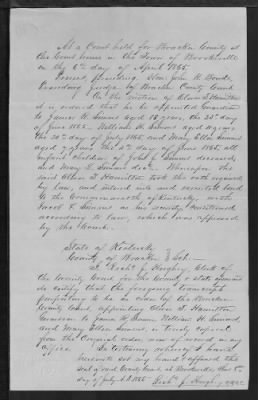 At a Court held for Bracken County at
the Court house in the Town of Brooksville
on the 6th day of April 1865.
Present presiding Hon John H. Boude
Presiding Judge of Bracken County Court
On the motion of Oliver T. Hamilton
it is ordered that he be appointed Guardian
to James W. Simms aged 12 years, the 23d day
of June 1865. William H. Simms aged
the 20th day of July 1865 and Mary Ellen Simms
aged 7 years the 2d day of June 1865. all
infant children of John L. Simms deceased,
and Mary L. Simms dec'd. Whereupon the
said Oliver T. Hamilton took the oath required
by law, and entered into and executed bond
to the Commonwealth of Kentucky, with
Jacob Simms as his security conditioned
according to law, which was approved
by the Court.
State of Kentucky
County of Bracken Sct.
I, Rich'd J. Hughey Clerk of
the County Court for the County & state aforesaid
do certify that the foregoing transcript
purporting to be an order of the Bracken
County Court, appointing Oliver T. Hamilton
Guardian to James W. Simms, William H. Simms,
and Mary Ellen Simms, is truly copied
from the Original order now of record in my
office. In testimony whereof I have
hereunto set my hand & affixed the
seal of said County Court at Brooksville this
day of July A.D. 1865 Rich'd J. Hughey